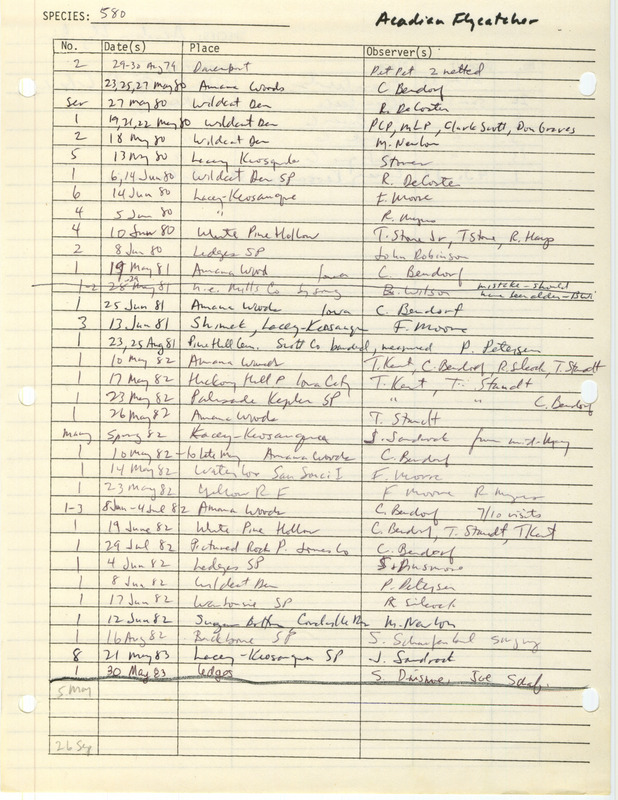 SPECIES: 580 Acadian Flycatcher
No. Date(s) Place Observer(s)
2 29-30 Aug 79 Davenport Pet Pet 2 netted
23,25,27 May 80 Amana Woods C Bendorf
Sev 27 May 80 Wildcat Den R. DeCoster
1 19,21,22 May 80 Wildcat Den PCP, MLP, Clark Scott, Don Graves
2 18 May 80 Wildcat Den M. Newlon
5 13 May 80 Lacey Keosauqua Stover
1 6,14 Jun 80 Wildcat Den SP R. DeCoster
6 14 Jun 80 Lacey-Keosauqua F. Moore
4 5 Jun 80 " R. Myers
4 10 Jun 80 White Pine Hollow T. Stone Jr, T Stone, R. Hays
2 8 Jun 80 Ledges SP John Robinson
1 19 May 81 Amana Wood Iowa C. Bendorf
1-2 28-29 May 81 n.e. Mills Co B. Wilson mistake - should have been alder - BW
1 25 Jun 81 Amana Woods Iowa C. Bendorf
3 13 Jun 81 Shimek, Lacey-Keosauqua F. Moore
1 23, 25 Aug 81 Pine Hill Cem. Scott Co banded, measured P. Petersen
1 10 May 82 Amana Woods T. Kent, C. Bendorf, R. Silcock, T. Staudt
1 17 May 82 Hickory Hill P Iowa City T. Kent, T. Staudt
1 23 May 82 Palisade Kepler SP " " C. Bendorf
1 26 May 82 Amana Woods T. Staudt
many Spring 82 Lacey-Keosauqua J. Sandrock from mid-May
1 10 May 82 - to late May Amana Woods C. Bendorf
1 14 May 82 Waterloo San Souci I F. Moore
1 23 May 82 Yellow R F F Moore R Myers
1-3 8 Jan - 4 Jul 82 Amana Woods C. Bendorf 7/10 visits
1 19 June 82 White Pine Hollow C. Bendorf, T. Staudt, T Kent
1 29 Jul 82 Pictured Rock P. Jones Co C. Bendorf
1 4 Jun 82 Ledges SP S. Dinsmore
1 8 Jun 82 Wildcat Den P. Petersen
1 17 Jun 82 Waubonsie SP R Silcock
1 12 Jun 82 Sugar Bottom Coralville Res M. Newlon
1 16 Aug 82 Backbone SP S. Schaufenbuel singing
8 21 May 83 Lacey-Keosauqua SP J. Sandrock
1 30 May 83 Ledges S. Dinsmore, Joe
5 May
26 Sep